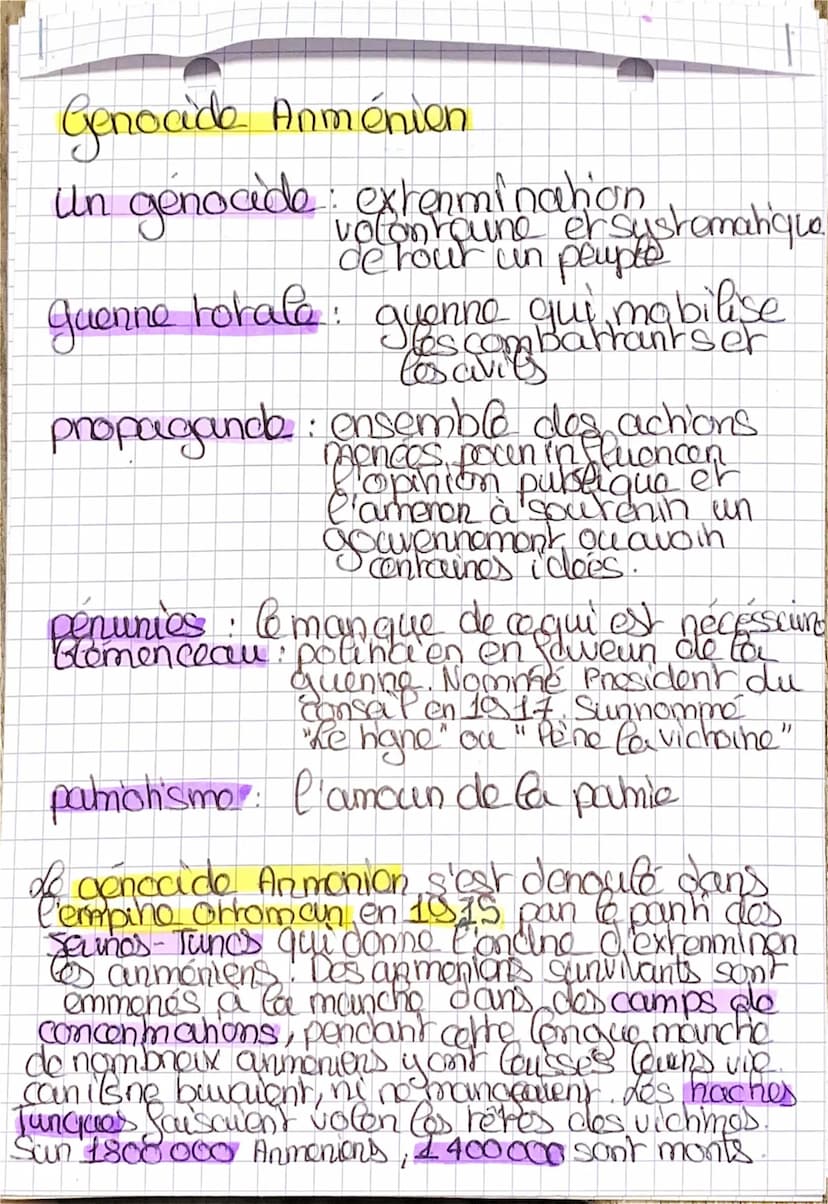 Genocide Arménien
un génocide : extermination
volontaire et systematique
de tout un peuple
guerre totale : guerre qui mobilise
les combattants et
les civils
propagande : ensemble des actions
menées pour influencer
l'opinion publique et
l'amener à soutenir un
gouvernement ou avoir
certaines idées.
pénuries : le manque de ce qui est nécéssaire
Clemenceau : politicien en faveur de la
guerre. Nommé President du
conseil en 1917. Surnommé
"Le tigre" ou "Père la victoire"
patriotisme : l'amour de la patrie
Le génocide Armenien s'est deroulé dans
l'empire Ottoman en 1915 par le parti des
Jeunes-Turcs qui donne l'ordre d'exterminer
les arméniens. Des armeniens survivants sont
emmenés a la marche dans des camps de
concentrations, pendant cette longue marche
de nombreux arméniens y ont laissés leurs vie
car ils ne buvaient, ni ne mangeaient. Les haches
Turques faisaient voler les têtes des victimes.
Sur 1800 000 Armeniens, 1 400 000 sont morts.